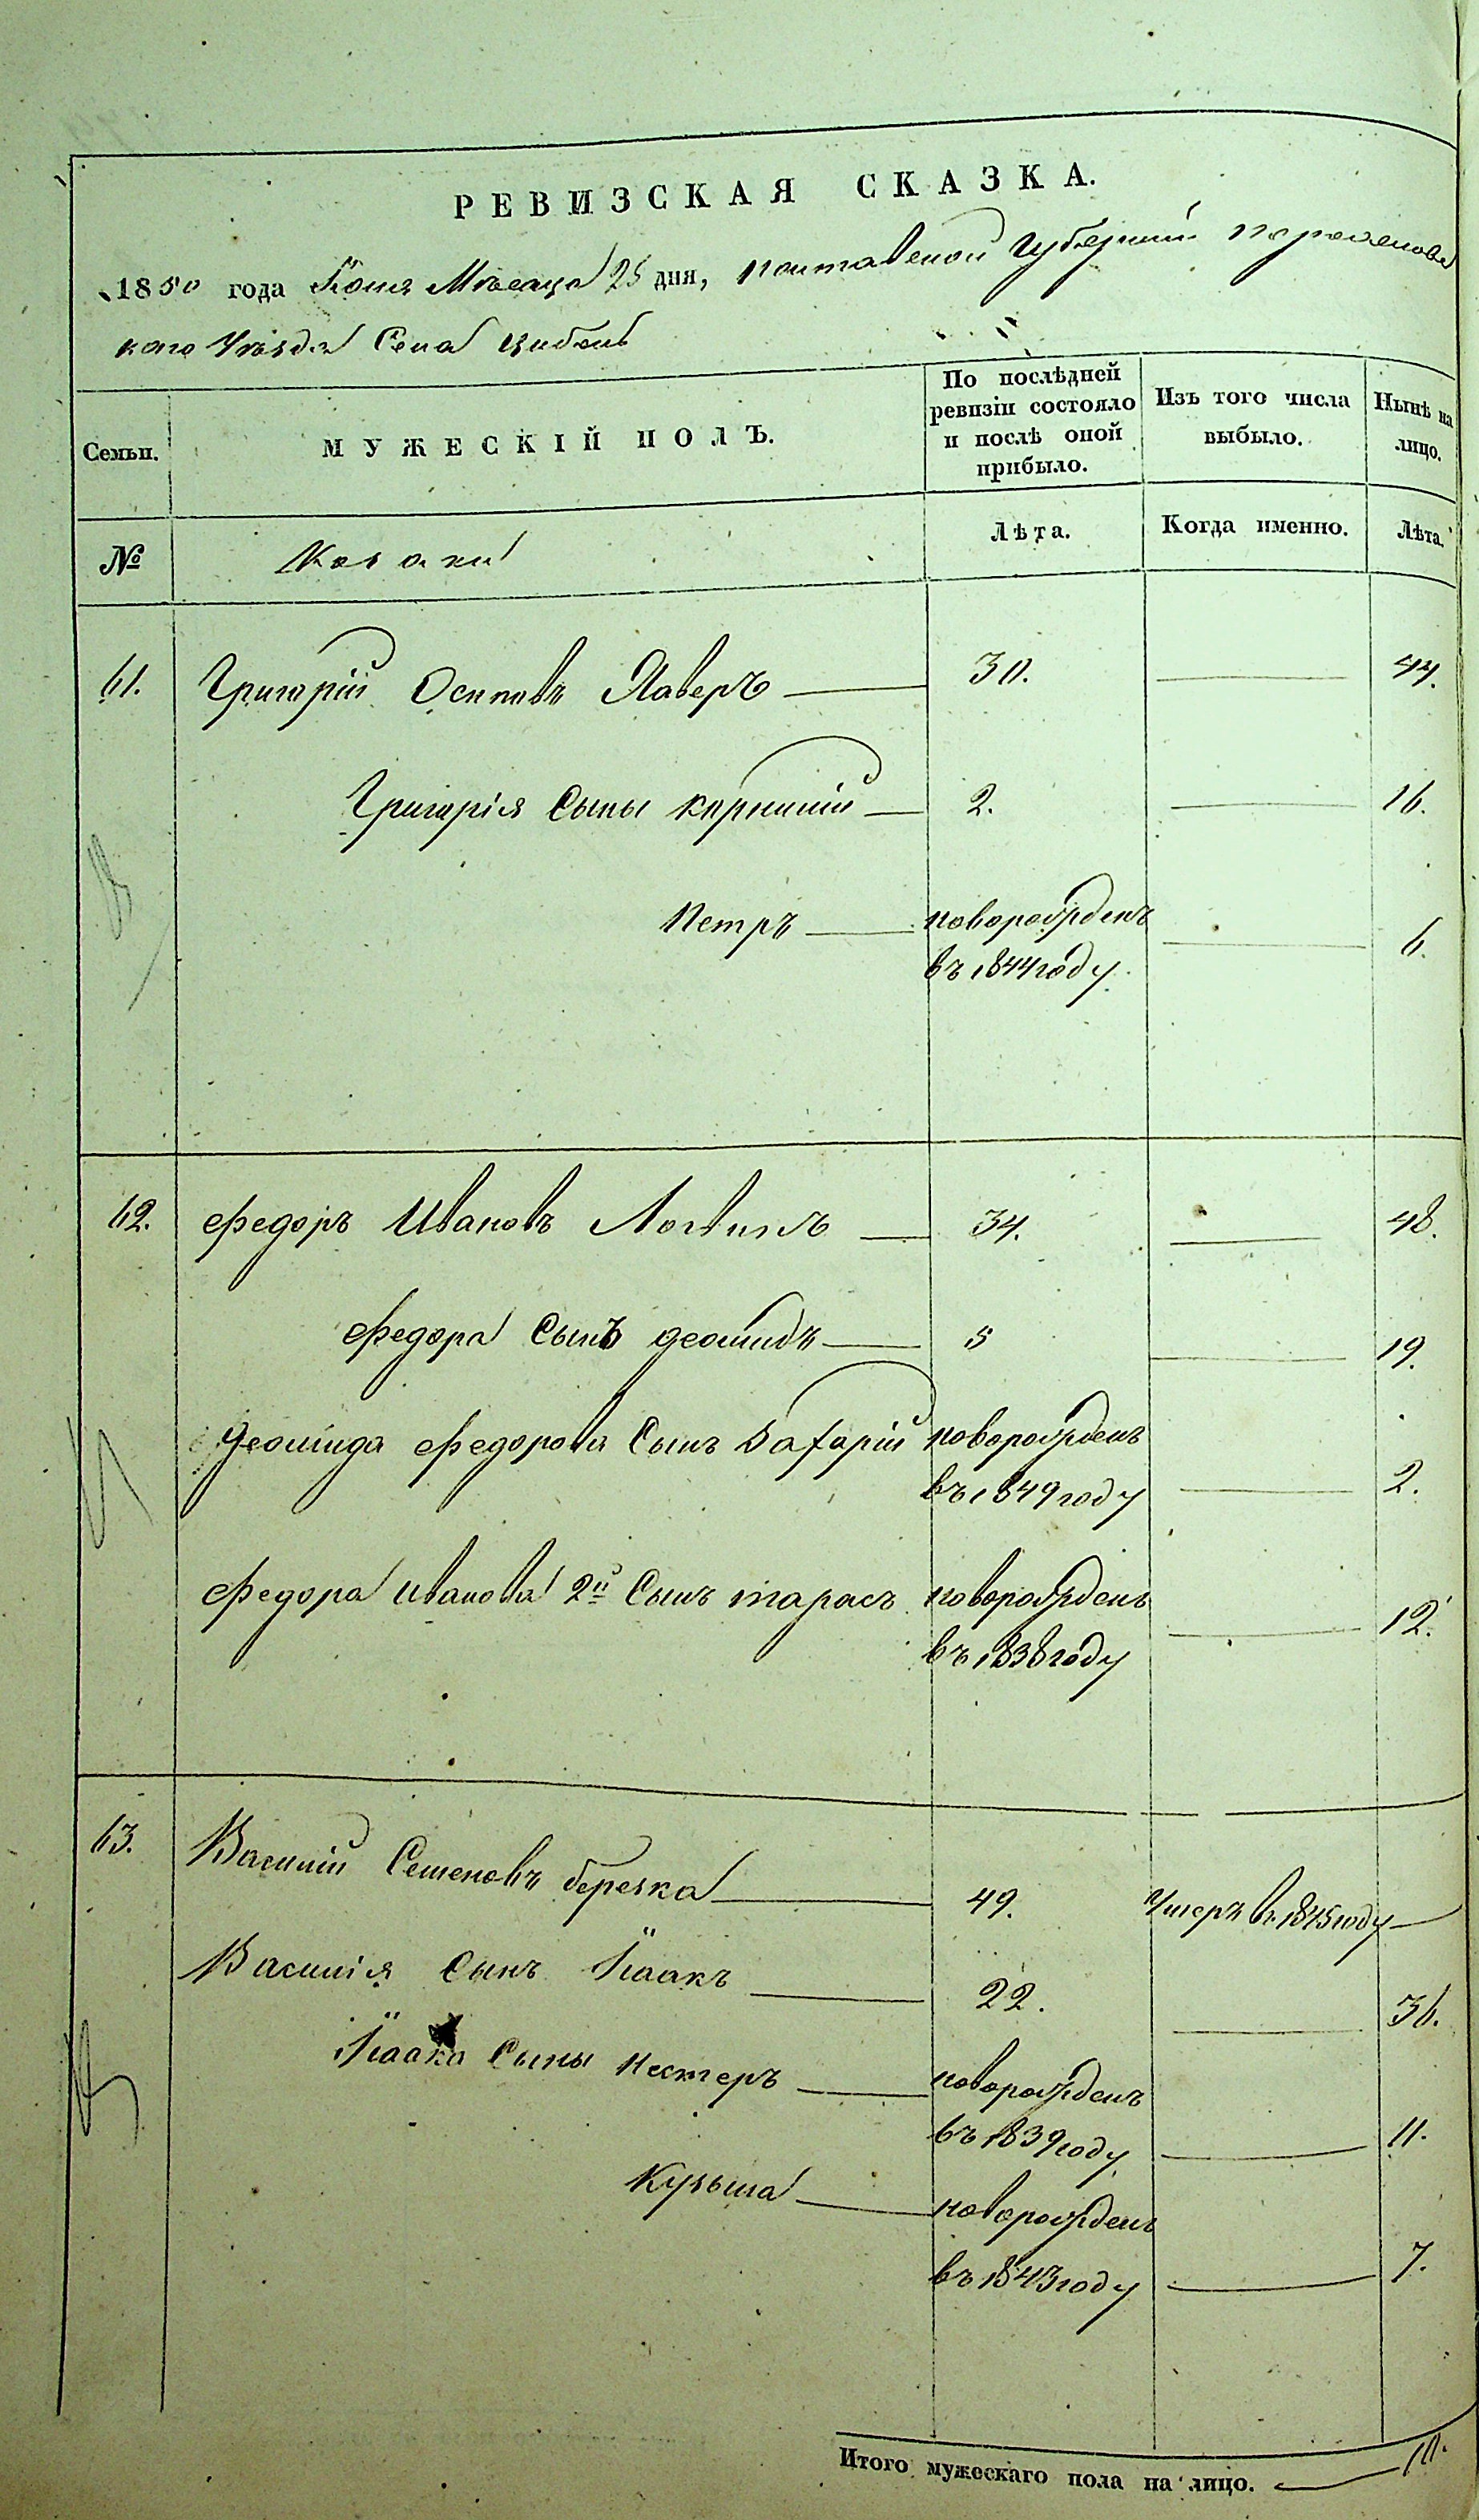 РЕВИЗСКАЯ СКАЗКА.
1850 года Іюня Мѣсяца 25 дня, Полтавской Губерніи Переяславс
каго Уѣзда Села Цибель
Семьи. МУЖЕСКІЙ ПОЛЪ. По послѣдней ревизіи состояло и послѣ оной прибыло. Изъ того числа выбыло. Нынѣ на лицо.
№ Козаки Лѣта. Когда именно. Лѣта.
61. Григорій Осиповъ Яаверъ 30. 44.
Григорія Сыны корнилій 2. 16.
Петръ новорожденъ 6.
въ 1844 году.
62. Федоръ Ивановъ Логвинъ 34. 48.
Федора Сынъ деомидъ 5 19.
Деомида Федорова Сынъ Захарій новорожденъ
въ 1849 году 2.
Федора Иванова 2й Сынъ тарасъ новорожденъ
въ 1838 году 12.
63. Василій Семеновъ березка 49. Умеръ въ 1845 году
Василія Сынъ Ісаакъ 22. 36.
Ісаака Сыны Нестеръ новорожденъ
въ 1839 году 11.
Кузьма новорожденъ
въ 1843 году 7.
Итого мужескаго пола на лицо. 10.